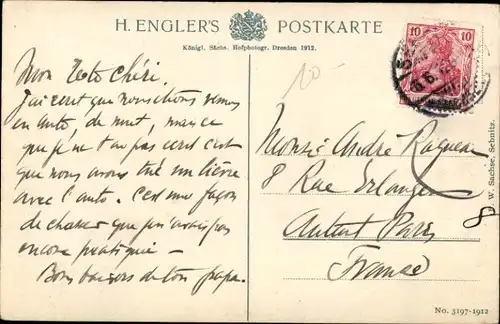 H. ENGLER'S POSTKARTE
Königl. Sächs. Hofphotogr. Dresden 1912.
10
10 10
Mon Toto chéri.
J'ai écrit que nous étions venus
en auto, de nuit, mais ce
que je ne t'ai pas écrit c'est
que nous avons tué un lièvre
avec l'auto. C'est une façon
de chasser que je n'avais pas
encore pratiquée —
Bons baisers de ton papa.
Monsr André
8 Rue Erlanger
Auteuil Paris
France
8
W. Sachse, Sebnitz.
No. 3197-1912